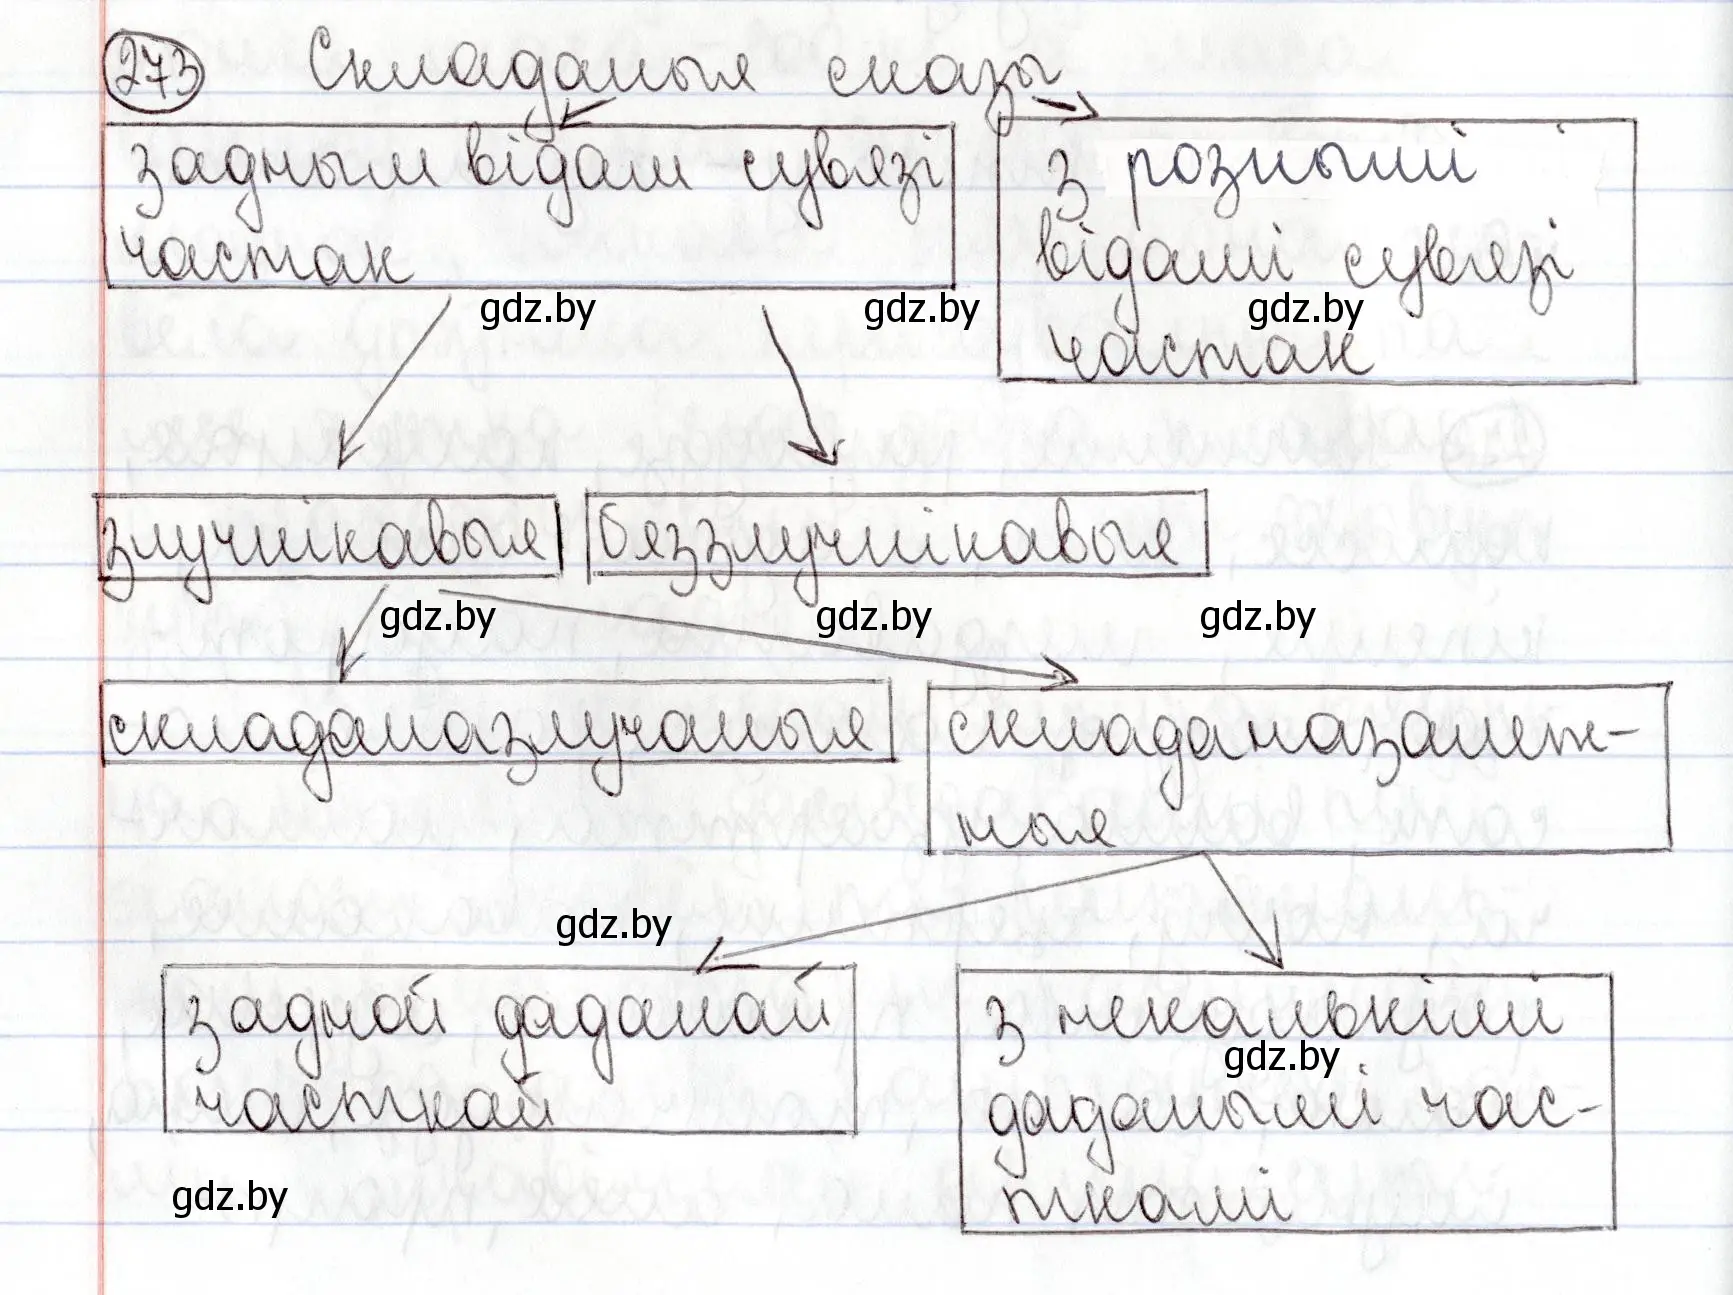 273 Складаныя сказы
задным відам сувязі
частак
з розным��і
відамі сувязі
частак
gdz.by gdz.by gdz.by
злучнікавыя
бяззлучнікавыя
gdz.by gdz.by gdz.by
складаназлучаныя
складаназалеж-
ныя
gdz.by
задной даданай
часткай
з некалькімі
gdz.by
даданымі час-
ткамі
gdz.by